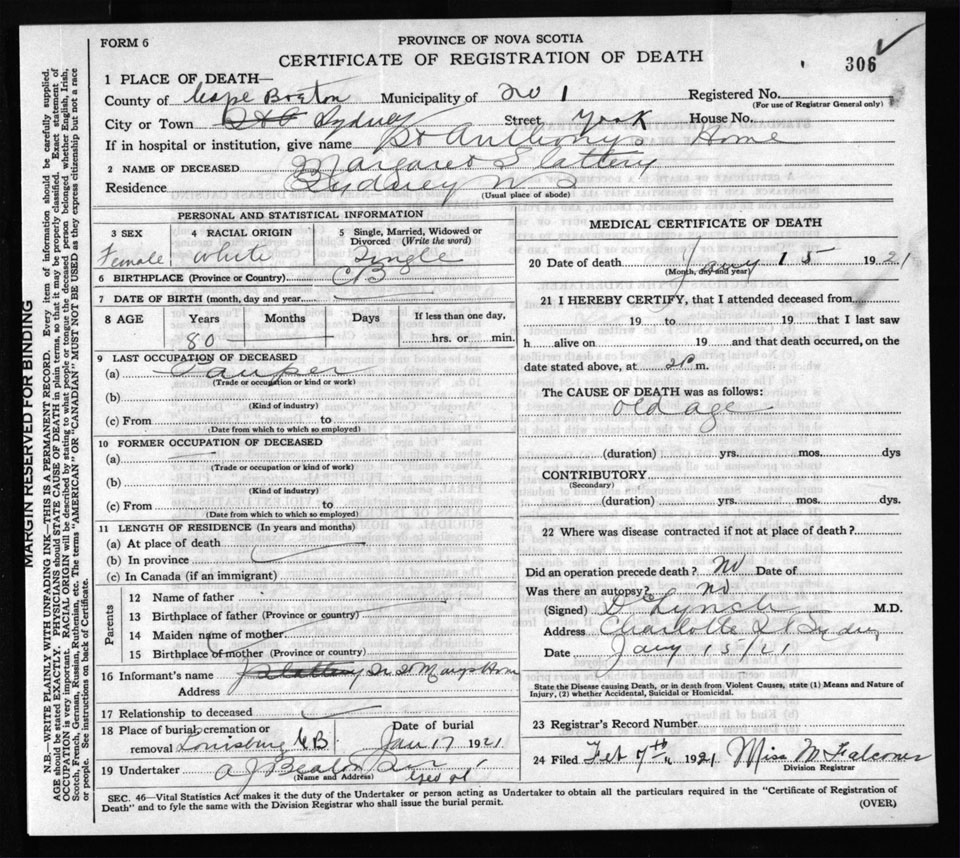 FORM 6
PROVINCE OF NOVA SCOTIA
CERTIFICATE OF REGISTRATION OF DEATH
306
1 PLACE OF DEATH—
County of Cape Breton Municipality of No 1 Registered No.
(For use of Registrar General only)
City or Town Sydney Street, York House No.
If in hospital or institution, give name St Anthonys Home
2 NAME OF DECEASED Margaret Slattery
Residence Sydney N S
(Usual place of abode)
PERSONAL AND STATISTICAL INFORMATION
3 SEX 4 RACIAL ORIGIN 5 Single, Married, Widowed or Divorced (Write the word)
Female White Single
6 BIRTHPLACE (Province or Country) C B
7 DATE OF BIRTH (month, day and year)
8 AGE Years Months Days If less than one day,
80 hrs. or min.
9 LAST OCCUPATION OF DECEASED
(a) Pauper
(Trade or occupation or kind or work)
(b)
(Kind of industry)
(c) From to
(Date from which to which so employed)
10 FORMER OCCUPATION OF DECEASED
(a)
(Trade or occupation or kind of work)
(b)
(Kind of industry)
(c) From to
(Date from which to which so employed)
11 LENGTH OF RESIDENCE (In years and months)
(a) At place of death
(b) In province
(c) In Canada (if an immigrant)
Parents
12 Name of father
13 Birthplace of father (Province or country)
14 Maiden name of mother
15 Birthplace of mother (Province or country)
16 Informant's name
Address
17 Relationship to deceased
18 Place of burial, cremation or removal Louisburg C B. Date of burial Jan 17 1921
19 Undertaker A J Beaton
(Name and Address)
MEDICAL CERTIFICATE OF DEATH
20 Date of death Jany 15 1921
(Month, day and year)
21 I HEREBY CERTIFY, that I attended deceased from
19 to 19 that I last saw
h alive on 19 and that death occurred, on the
date stated above, at m.
The CAUSE OF DEATH was as follows:
Old age
(duration) yrs. mos. dys
CONTRIBUTORY
(Secondary)
(duration) yrs. mos. dys.
22 Where was disease contracted if not at place of death?
Did an operation precede death? No Date of
Was there an autopsy? No
(Signed) D Lynch M.D.
Address Charlotte St Sydney
Date Jany 15/21
State the Disease causing Death, or in death from Violent Causes, state (1) Means and Nature of Injury, (2) whether Accidental, Suicidal or Homicidal.
23 Registrar's Record Number
24 Filed Feb 7th 1921 Miss M Falconer
Division Registrar
SEC. 46—Vital Statistics Act makes it the duty of the Undertaker or person acting as Undertaker to obtain all the particulars required in the "Certificate of Registration of
Death" and to fyle the same with the Division Registrar who shall issue the burial permit.
(OVER)
MARGIN RESERVED FOR BINDING
N.B.—WRITE PLAINLY WITH UNFADING INK—THIS IS A PERMANENT RECORD. Every item of information should be carefully supplied.
AGE should be stated EXACTLY. PHYSICIANS should STATE CAUSE OF DEATH in plain terms, so that it may be properly classified. Exact statement of
OCCUPATION is very important. RACIAL ORIGIN will be described by stating to what people or tongue the deceased person belonged whether English, Irish,
Scotch, French, German, Russian, Ruthenian, etc. The terms "AMERICAN" OR "CANADIAN" MUST NOT BE USED as they express citizenship but not a race
or people. See instructions on back of Certificate.